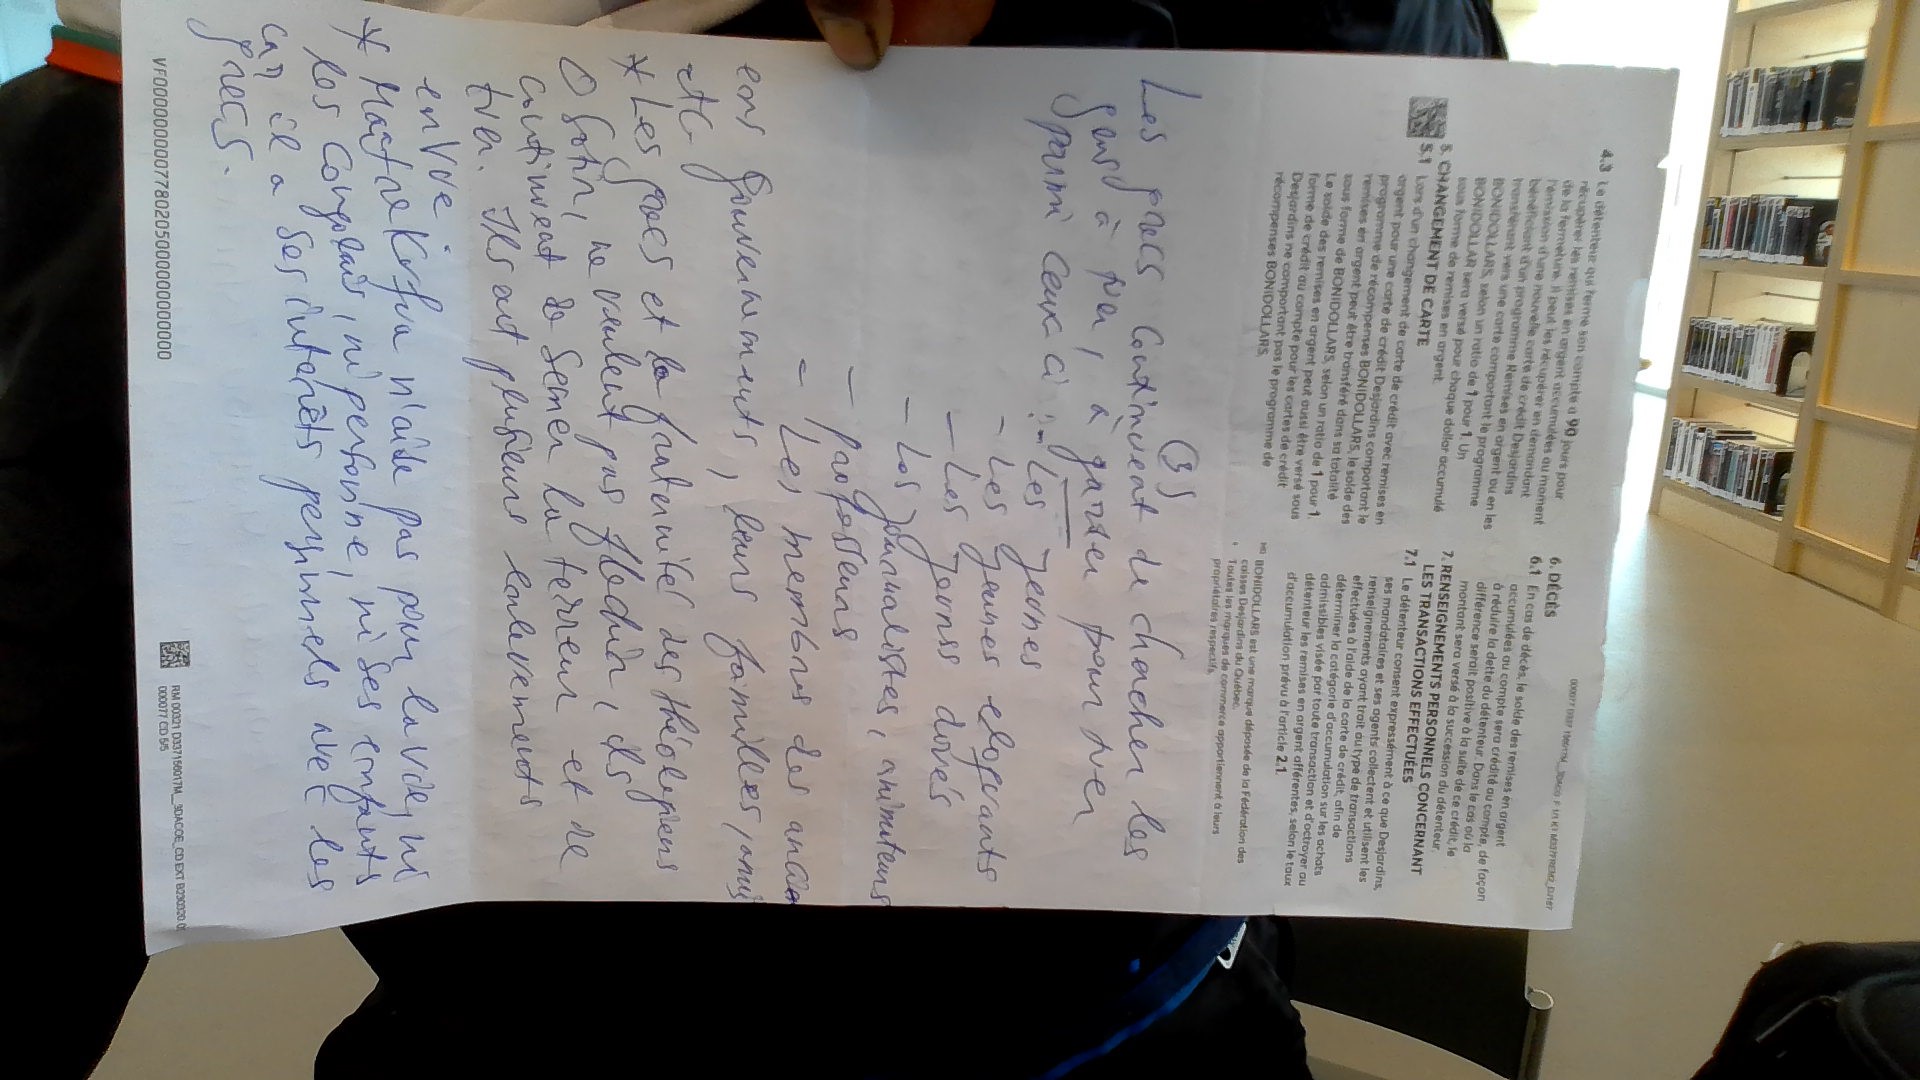 4.3 Le détenteur qui ferme son compte a 90 jours pour
récupérer les remises en argent accumulées au moment
de la fermeture. Il peut les récupérer en demandant
l'émission d'une nouvelle carte de crédit Desjardins
bénéficiant d'un programme Remises en argent ou en les
transférant vers une carte comportant le programme
BONIDOLLARS, selon un ratio de 1 pour 1. Un
BONIDOLLAR sera versé pour chaque dollar accumulé
sous forme de remises en argent.
5. CHANGEMENT DE CARTE
5.1 Lors d'un changement de carte de crédit avec remises en
argent pour une carte de crédit Desjardins comportant le
programme de récompenses BONIDOLLARS, le solde des
remises en argent peut être transféré dans sa totalité
sous forme de BONIDOLLARS, selon un ratio de 1 pour 1.
Le solde des remises en argent peut aussi être versé sous
forme de crédit au compte pour les cartes de crédit
Desjardins ne comportant pas le programme de
récompenses BONIDOLLARS.
6. DÉCÈS
6.1 En cas de décès, le solde des remises en argent
accumulées au compte sera crédité au compte, de façon
à réduire la dette du détenteur. Dans le cas où la
différence serait positive à la suite de ce crédit, le
montant sera versé à la succession du détenteur.
7. RENSEIGNEMENTS PERSONNELS CONCERNANT
LES TRANSACTIONS EFFECTUÉES
7.1 Le détenteur consent expressément à ce que Desjardins,
ses mandataires et ses agents collectent et utilisent les
renseignements ayant trait au type de transactions
effectuées à l'aide de la carte de crédit, afin de
déterminer la catégorie d'accumulation sur les achats
admissibles visée par toute transaction et d'octroyer au
détenteur les remises en argent afférentes, selon le taux
d'accumulation prévu à l'article 2.1.
MD BONIDOLLARS est une marque déposée de la Fédération des
caisses Desjardins du Québec.
* Toutes les marques de commerce appartiennent à leurs
propriétaires respectifs.
Les grecs continuent de chercher les
gens à tuer, à garder pour tuer
parmi ceux ci :
- Les jeunes
- Les jeunes elegants
- Les jeunes doués
- Les journalistes, animateurs
- professeurs
- Les membres des anciens
gouvernements, leurs familles, amis
etc.
* Les grecs et la fraternité des théologiens
continuent de semer la terreur et de
tuer. Ils ont plusieurs enlevements
en vue
* Maitre Kofua n'aide pas pour la vie, ni
les congolais, ni personne, ni ses enfants
car il a ses intérêts personnels avec les
grecs.
VF00000000778020500000000000